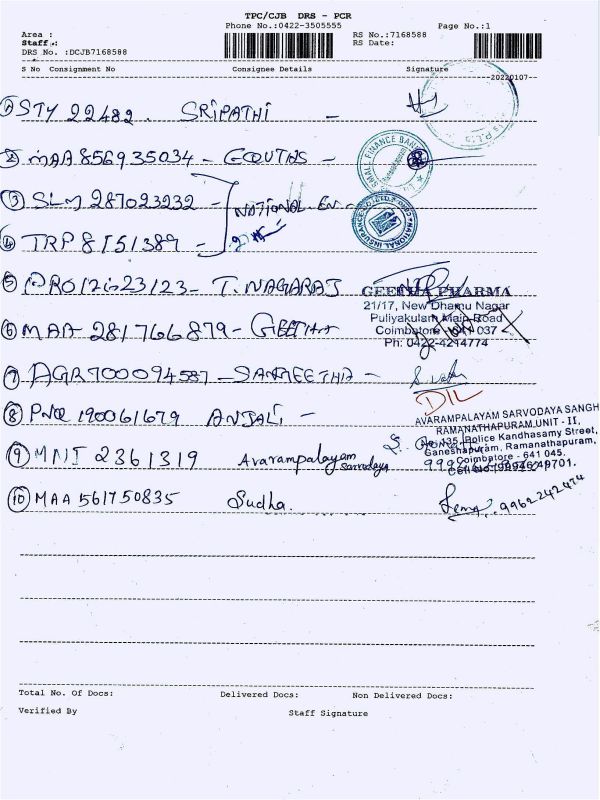 TPC/CJB DRS - PCR
Phone No.:0422-3505555
Page No.:1
Area :
Staff :
DRS No. :DCJB7168588
RS No.:7168588
RS Date:
S No Consignment No Consignee Details Signature
20220107
1 STY 22482. SRIPATHI -
2 MAA 856935034 -
SMALL FINANCE BANK
3 SLM 287023232 - NATIONAL. EN -
NATIONAL INSURANCE
4 TRP 8151389 -
5 T. NAGARAJ
GEETHA PHARMA
21/17, New Dhamu Nagar
Puliyakulam Main Road
Coimbatore 037
Ph: 0422-4214774
6 MAA 281766879 - GEETHA
7 AGR700094587 - SANGEETHA -
8 PNQ 190061679 ANJALI -
AVARAMPALAYAM SARVODAYA SANGH
RAMANATHAPURAM UNIT - II,
No. 135, Police Kandhasamy Street,
Ganeshapuram, Ramanathapuram,
Coimbatore - 641 045.
9 MNI 2361319 Avarampalayam
sarvodaya
10 MAA 561750835 Sudha.
9962242474
Total No. Of Docs: Delivered Docs: Non Delivered Docs:
Verified By Staff Signature